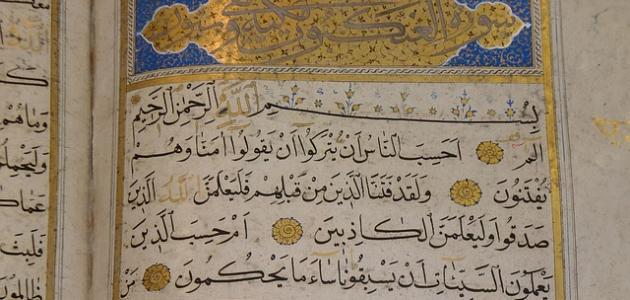 سورة العنكبوت
بسم الله الرحمن الرحيم
الم احسب الناس ان يتركوا ان يقولوا امنا وهم
يفتنون ولقد فتنا الذين من قبلهم فليعلمن الله الذين
صدقوا وليعلمن الكاذبين ام حسب الذين
يعملون السيئات ان يسبقونا ساء ما يحكمون من
وما هم